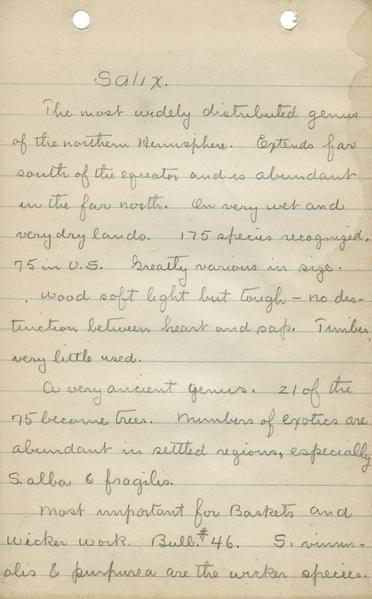 Salix.
The most widely distributed genus
of the northern Hemisphere. Extends far
south of the equator and is abundant
in the far north. On very wet and
very dry lands. 175 species recognized,
75 in U.S. Greatly various in size.
Wood soft light but tough – no dis-
tinction between heart and sap. Timber
very little used.
A very ancient genus. 21 of the
75 become trees. Numbers of exotics are
abundant in settled regions, especially
S. alba & fragilis.
Most important for Baskets and
wicker work. Bull. #46. S. vimin-
alis & purpurea are the wicker species.